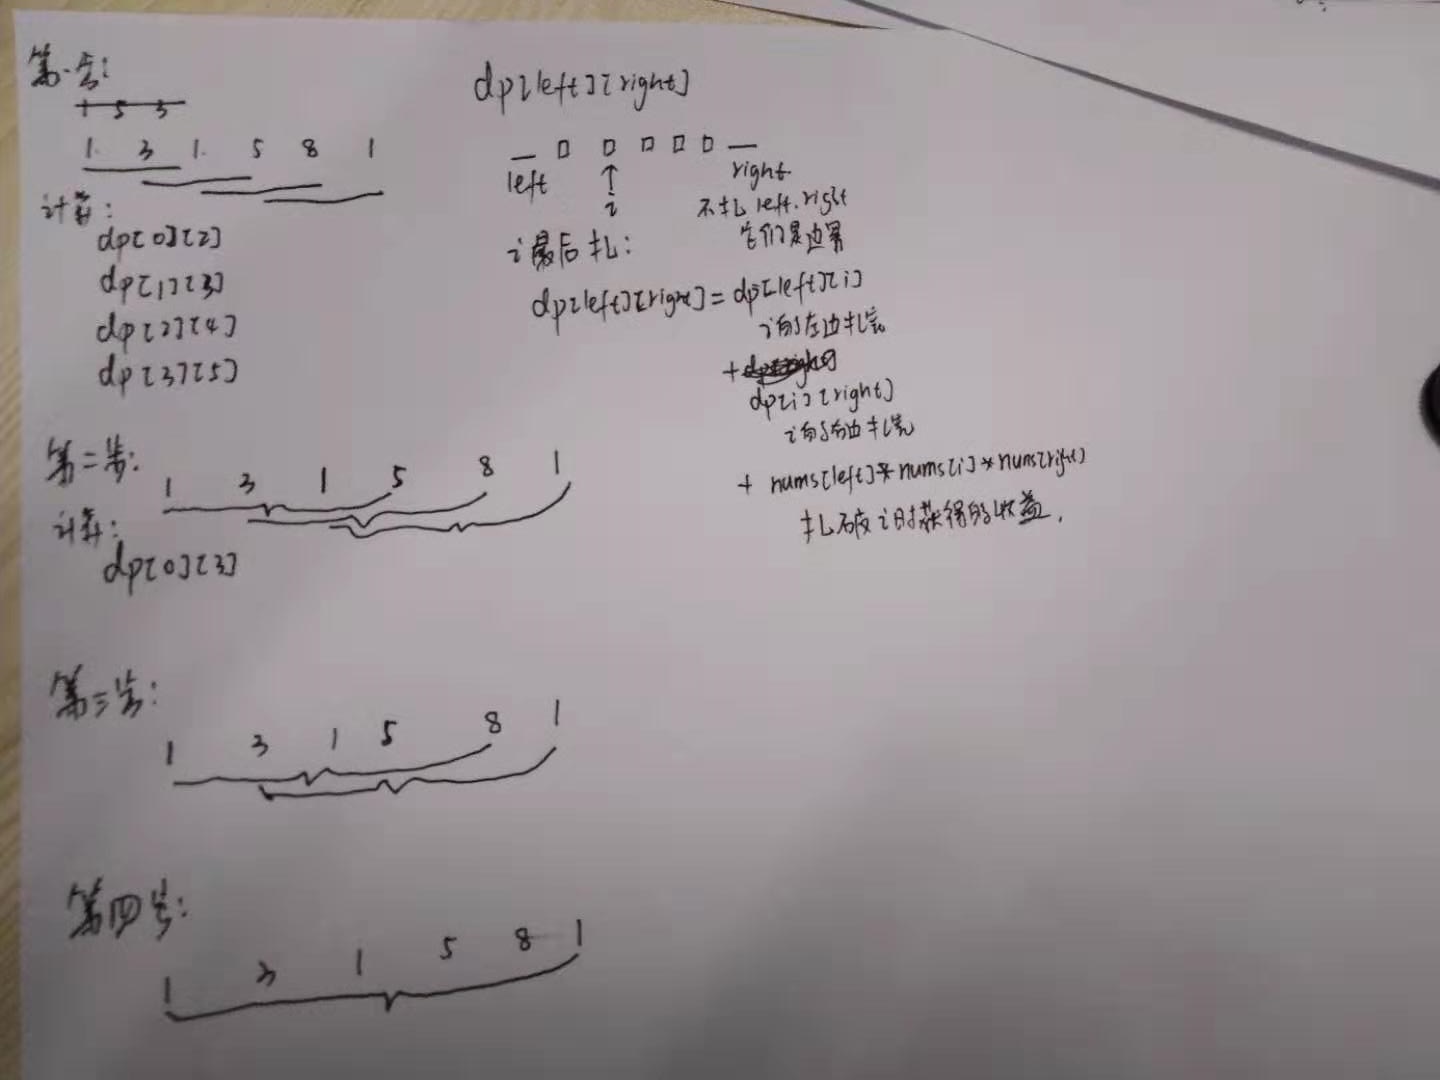 第一步:
1 5 3
1 3 1 5 8 1
计算:
dp[0][2]
dp[1][3]
dp[2][4]
dp[3][5]
第二步:
1 3 1 5 8 1
计算:
dp[0][3]
第三步:
1 3 1 5 8 1
第四步:
1 3 1 5 8 1
dp[left][right]
left
right
i
不扎left.right
它们是边界
i最后扎:
dp[left][right]=dp[left][i]
i的左边扎完
+
dp[i][right]
i的右边扎完
+ nums[left]*nums[i]*nums[right]
扎破i时获得的收益.